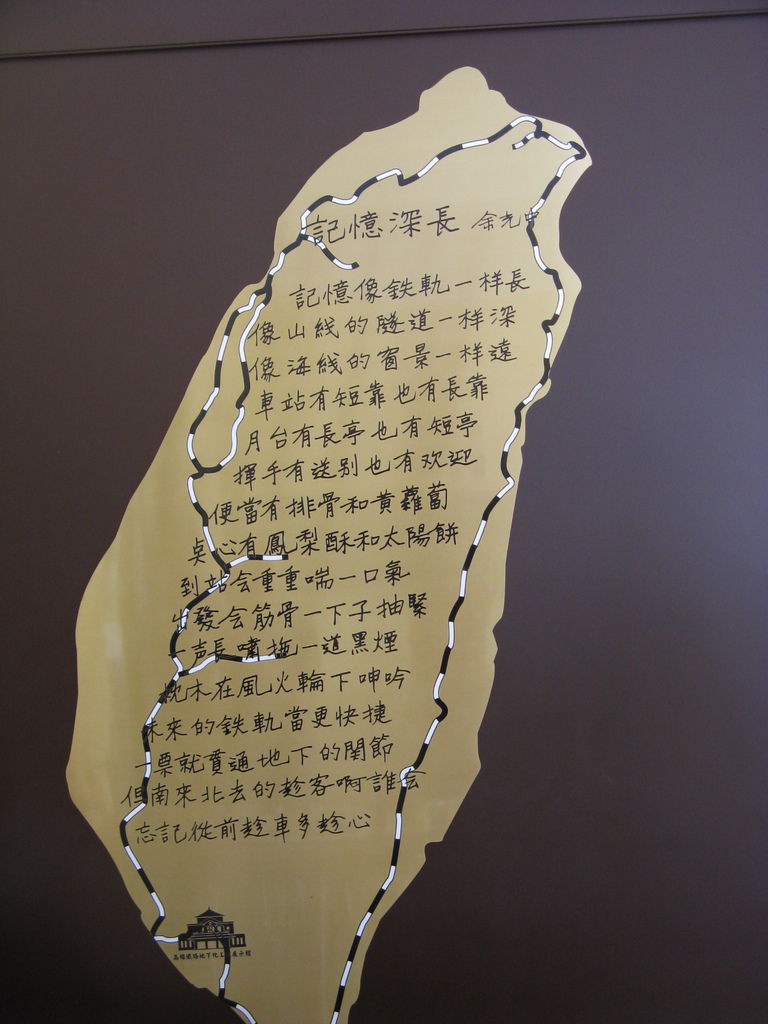 記憶深長 余光中
記憶像鉄軌一样長
像山綫的隧道一样深
像海綫的窗景一样遠
車站有短靠也有長靠
月台有長亭也有短亭
揮手有送别也有欢迎
便當有排骨和黄蘿蔔
点心有鳳梨酥和太陽餅
到站会重重喘一口氣
出發会筋骨一下子抽緊
一声長嘯拖一道黑煙
枕木在風火輪下呻吟
未來的鉄軌當更快捷
一票就貫通地下的関節
但南來北去的趁客啊誰会
忘記從前趁車多趁心
高雄鐵路地下化工程展示館